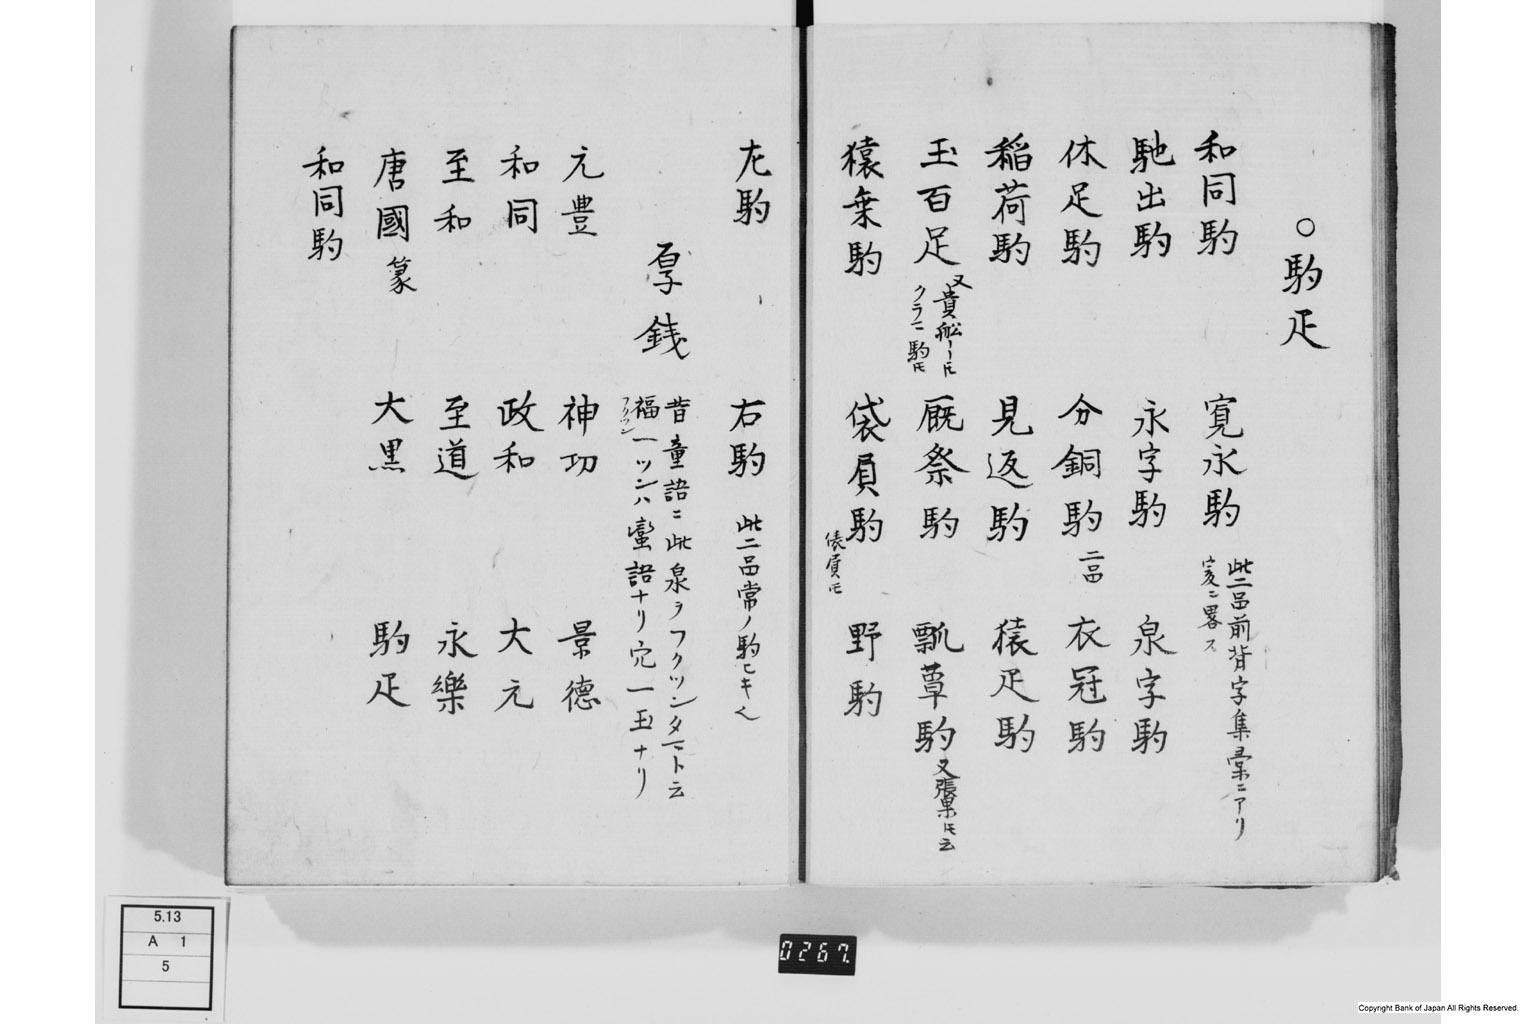 ○駒疋
和同駒 寛永駒 此二品前背字集彙ニアリ
爰ニ畧ス
馳出駒 永字駒 泉字駒
休足駒 分銅駒 二品 衣冠駒
稲荷駒 見返駒 猿疋駒
玉百足 又貴舩
クラマ駒トモ 厩祭駒 瓢蕈駒 又張果トモ云
猿乗駒 袋負駒 俵負トモ 野駒
左駒 右駒 此二品常ノ駒ヒキ也
厚銭 昔童語ニ此泉ヲフクツンタマト云
福一ツンハ蛮語ナリ穴一玉ナリ
フクツン
元豊 神功 景徳
和同 政和 大元
至和 至道 永樂
唐國 篆 大黒 駒疋
和同駒
5.13
A 1
5
0267.
Copyright Bank of Japan All Rights Reserved.